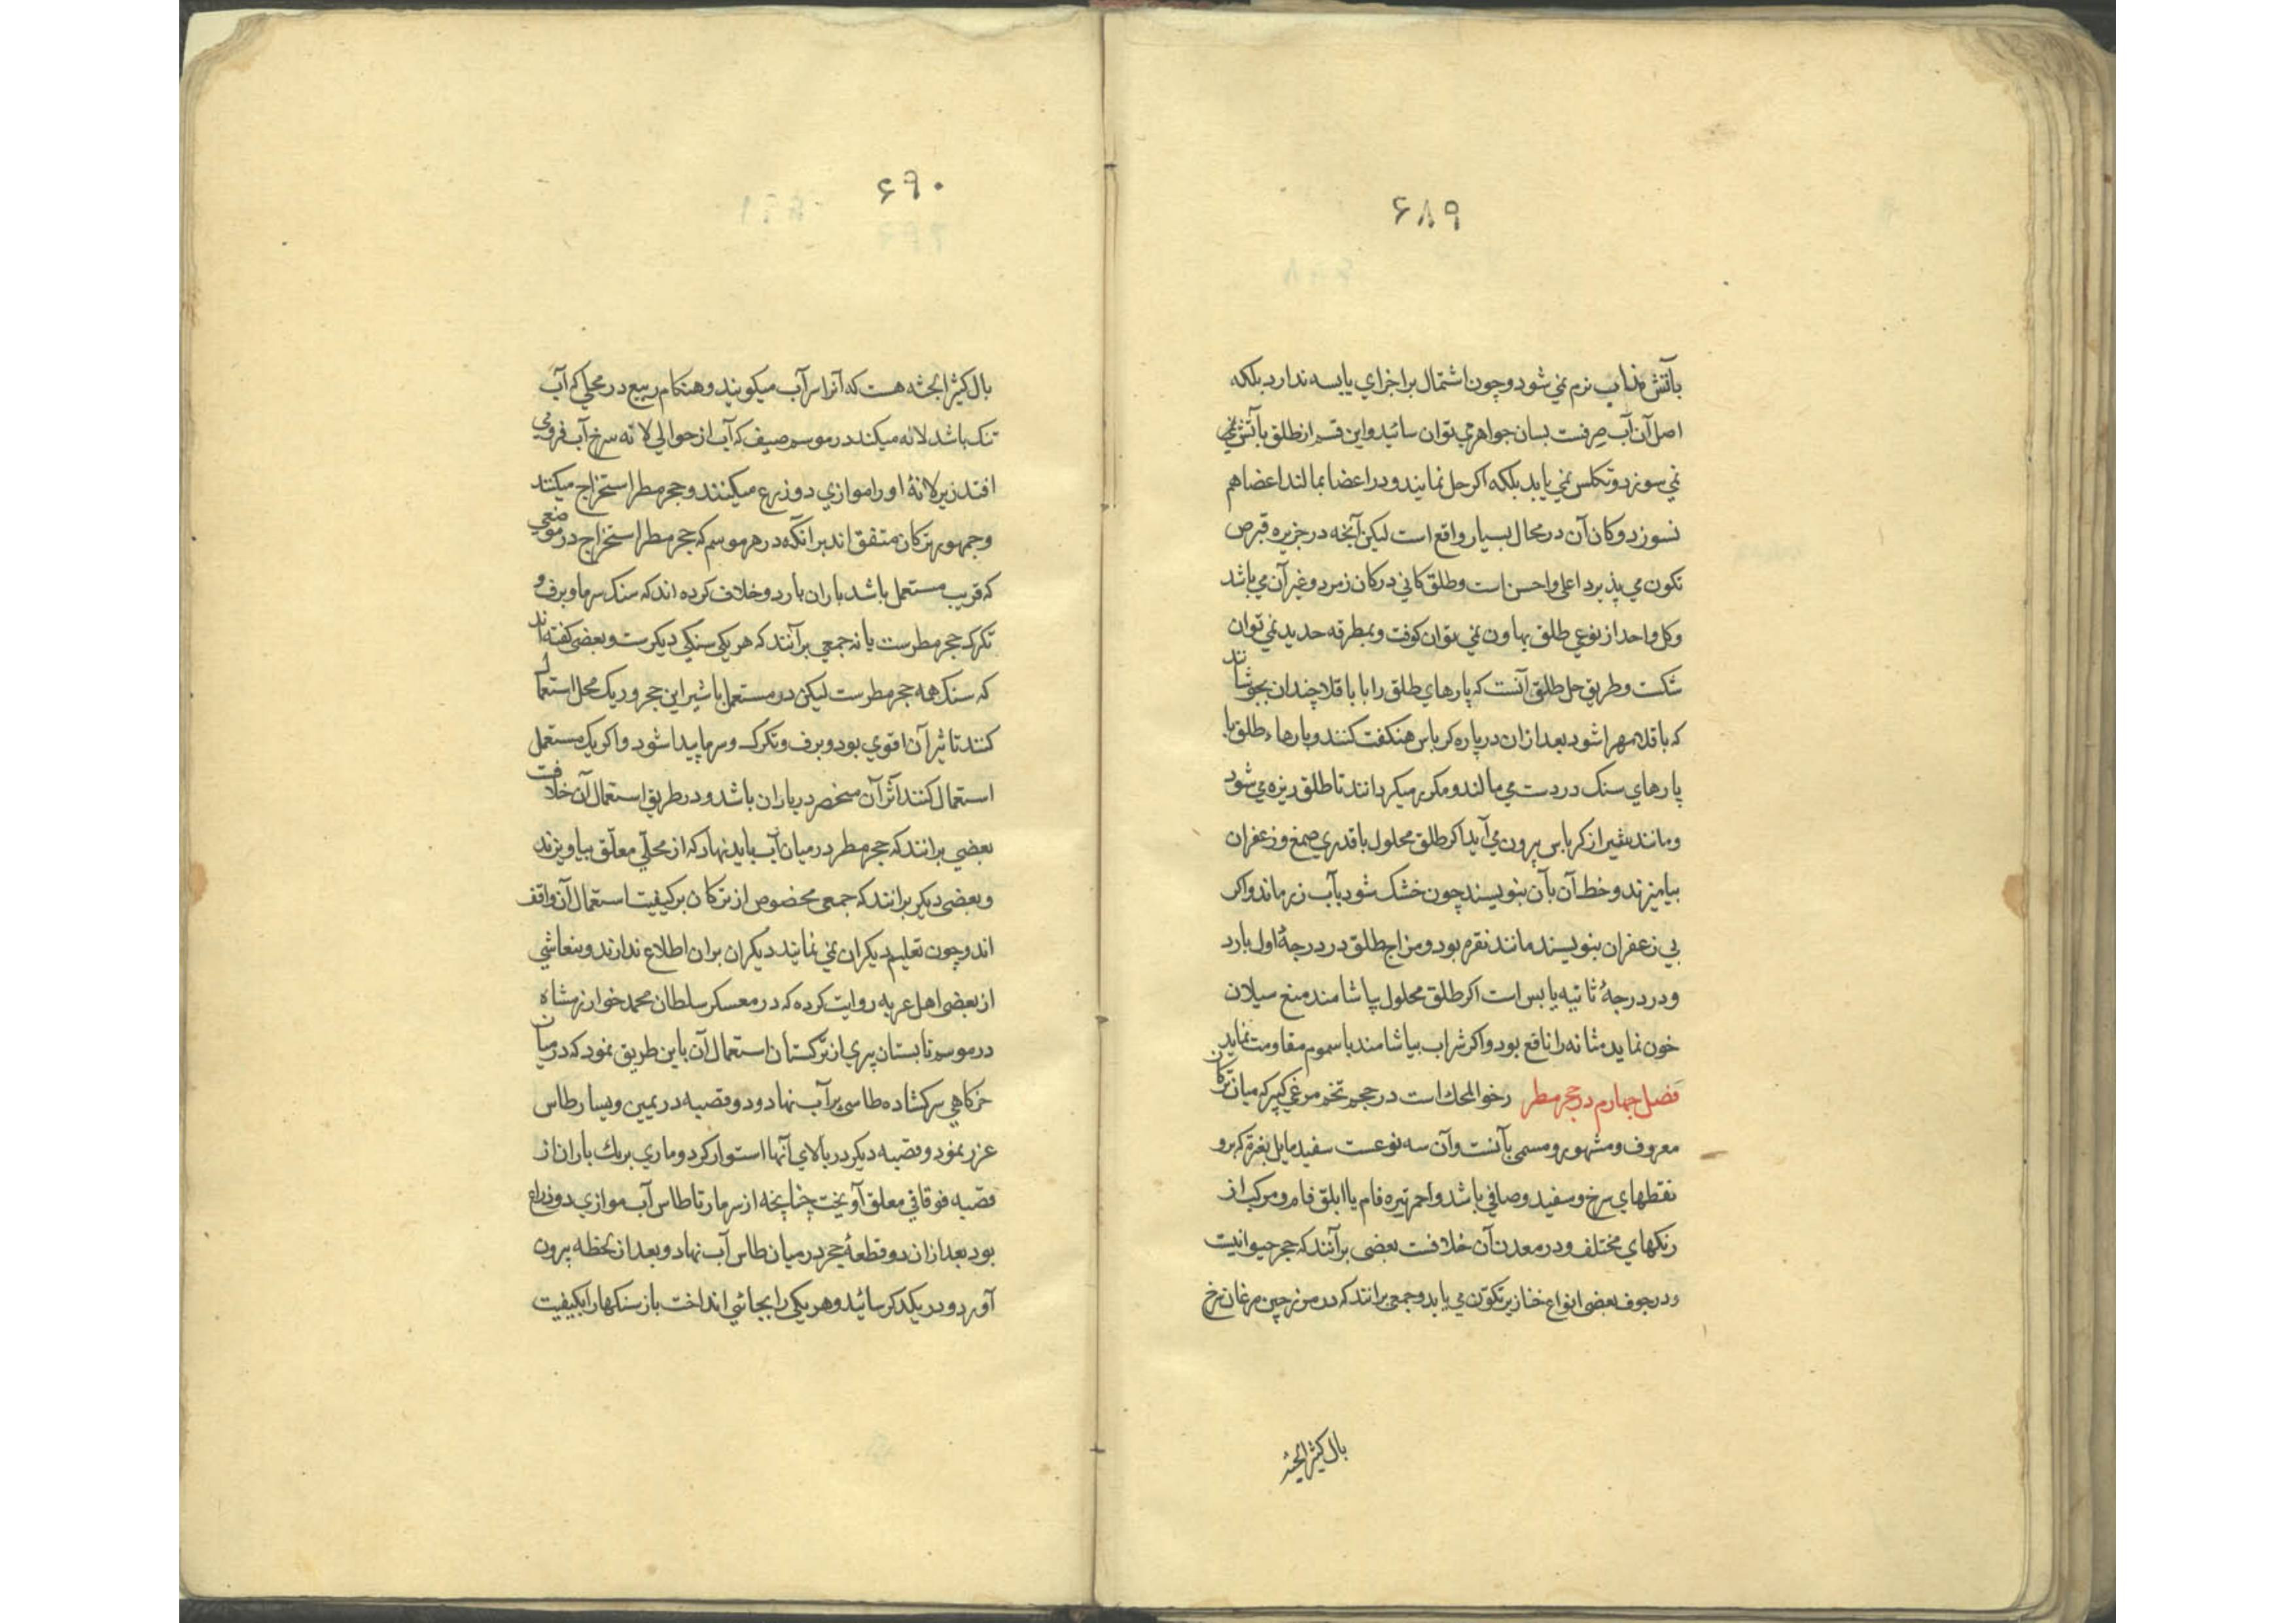 ۶۸۹
بآتش مذاب نرم نمي شود و چون اشتمال بر اجزاي يابسه ندارد بلكه
اصل آن آب صرفست بسان جواهر مي توان سائيد و اين قسم از طلق بآتش نمي
نمي سوزد و تكلس نمي يابد بلكه اكر حل نمايند و در اعضا بمالند اعضا هم
نسوزد و كان آن در محال بسيار واقع است ليكن آنچه در جزيره قبرص
تكون مي پذيرد اعلي و احسن است و طلق كاني در كان زمرد و غير آن مي باشد
و كل واحد از نوعي طلق بهاون نمي توان كوفت و بمطرقه حديد نمي توان
شكست و طريق حل طلق آنست كه پارهاي طلق را با باقلا چندان بجوشانند
كه باقلا مهرا شود بعد ازان در پاره كرباس هنكفت كنند و بارها طلق با
پارهاي سنك در دست مي مالند و مكرر ميكردانند تا طلق ريزه مي شود
و مانند شير از كرباس بيرون مي آيد اكر طلق محلول با قدري صمغ و زعفران
بياميزند و خط آن بآن بنويسند چون خشك شود بآب زر ماند و اكر
بي زعفران بنويسند مانند نقره بود و مزاج طلق در درجۀ اول بارد
و در درجۀ ثانيه يابس است اكر طلق محلول بياشامند منع سيلان
خون نمايد مثانه را نافع بود و اكر شراب بياشامند با سموم مقاومت نمايد
فصل چهارم در حجر مطر رخو المحك است در حجم تخم مرغي كبير كه ميان تركان
معروف و مشهور و مسمي بآنست و آن سه نوعست سفيد مايل بغبرة كه برو
نقطهاي سرخ و سفيد و صافي باشد و احمر تيره فام يا ابلق فام و مركب از
رنكهاي مختلف و در معدن آن خلافست بعضي برآنند كه حجر حيوانيت
و در جوف بعضي انواع خنازير تكوّن مي يابد و جمعي برانند كه در مرز چين مرغان سرخ
بال كثير الجثه
۶۹۰
بال كثير الجثه هست كه آنرا سرآب ميكويند و هنكام ربيع در محلي كه آب
تنك باشد لانه ميكند در موسم صيف كه آب از حوالي لانه سرخ آب فرو مي
افتد زير لانۀ او را موازي دو ذرع ميكنند و حجر مطر استخراج ميكنند
و جمهور تركان متفق اند بر آنكه در هر موسم كه حجر مطر استخراج در موضعي
كه قريب مستعمل باشد باران بارد و خلاف كرده اند كه سنك سرما و برف و
تكرك حجر مطرست يا نه جمعي برآنند كه هر يكي سنكي ديكرست و بعضي كفته اند
كه سنك همه حجر مطرست ليكن در مستعمل باشير اين حجر و در يك محل استعمال
كنند تاثير آن اقوي بود و برف و تكرك و سرما پيدا شود و اكر يك مستعمل
استعمال كنند اثر آن منحصر در باران باشد و در طريق استعمال آن خلافست
بعضي برانند كه حجر مطر در ميان آب بايد نهاد كه از محلّي معلّق بياويزند
و بعضي ديكر برانند كه جمعي مخصوص از تركان بر كيفيت استعمال آن واقف
اند و چون تعليم ديكران نمي نمايند ديكران بران اطلاع ندارند و بنعاشي
از بعضي اهل عربه روايت كرده كه در معسكر سلطان محمد خوارزمشاه
در موسم تابستان پيري از تركستان استعمال آن باين طريق نمود كه در ميان
خركاهي سركشاده طاسي پر آب نهاد و دو قصبه در يمين و يسار طاس
غرز نمود و قصبه ديكر در بالاي آنها استوار كرد و ماري برنك باران از
قصبه فوقاني معلق آويخت چنانچه از سر مار تا طاس آب موازي دو ذراع
بود بعد ازان دو قطعۀ حجر در ميان طاس آب نهاد و بعد از لحظه بيرون
آورد و در يكديكر سائيد و هر يكي را بجائي انداخت باز سنكها را بكيفيت